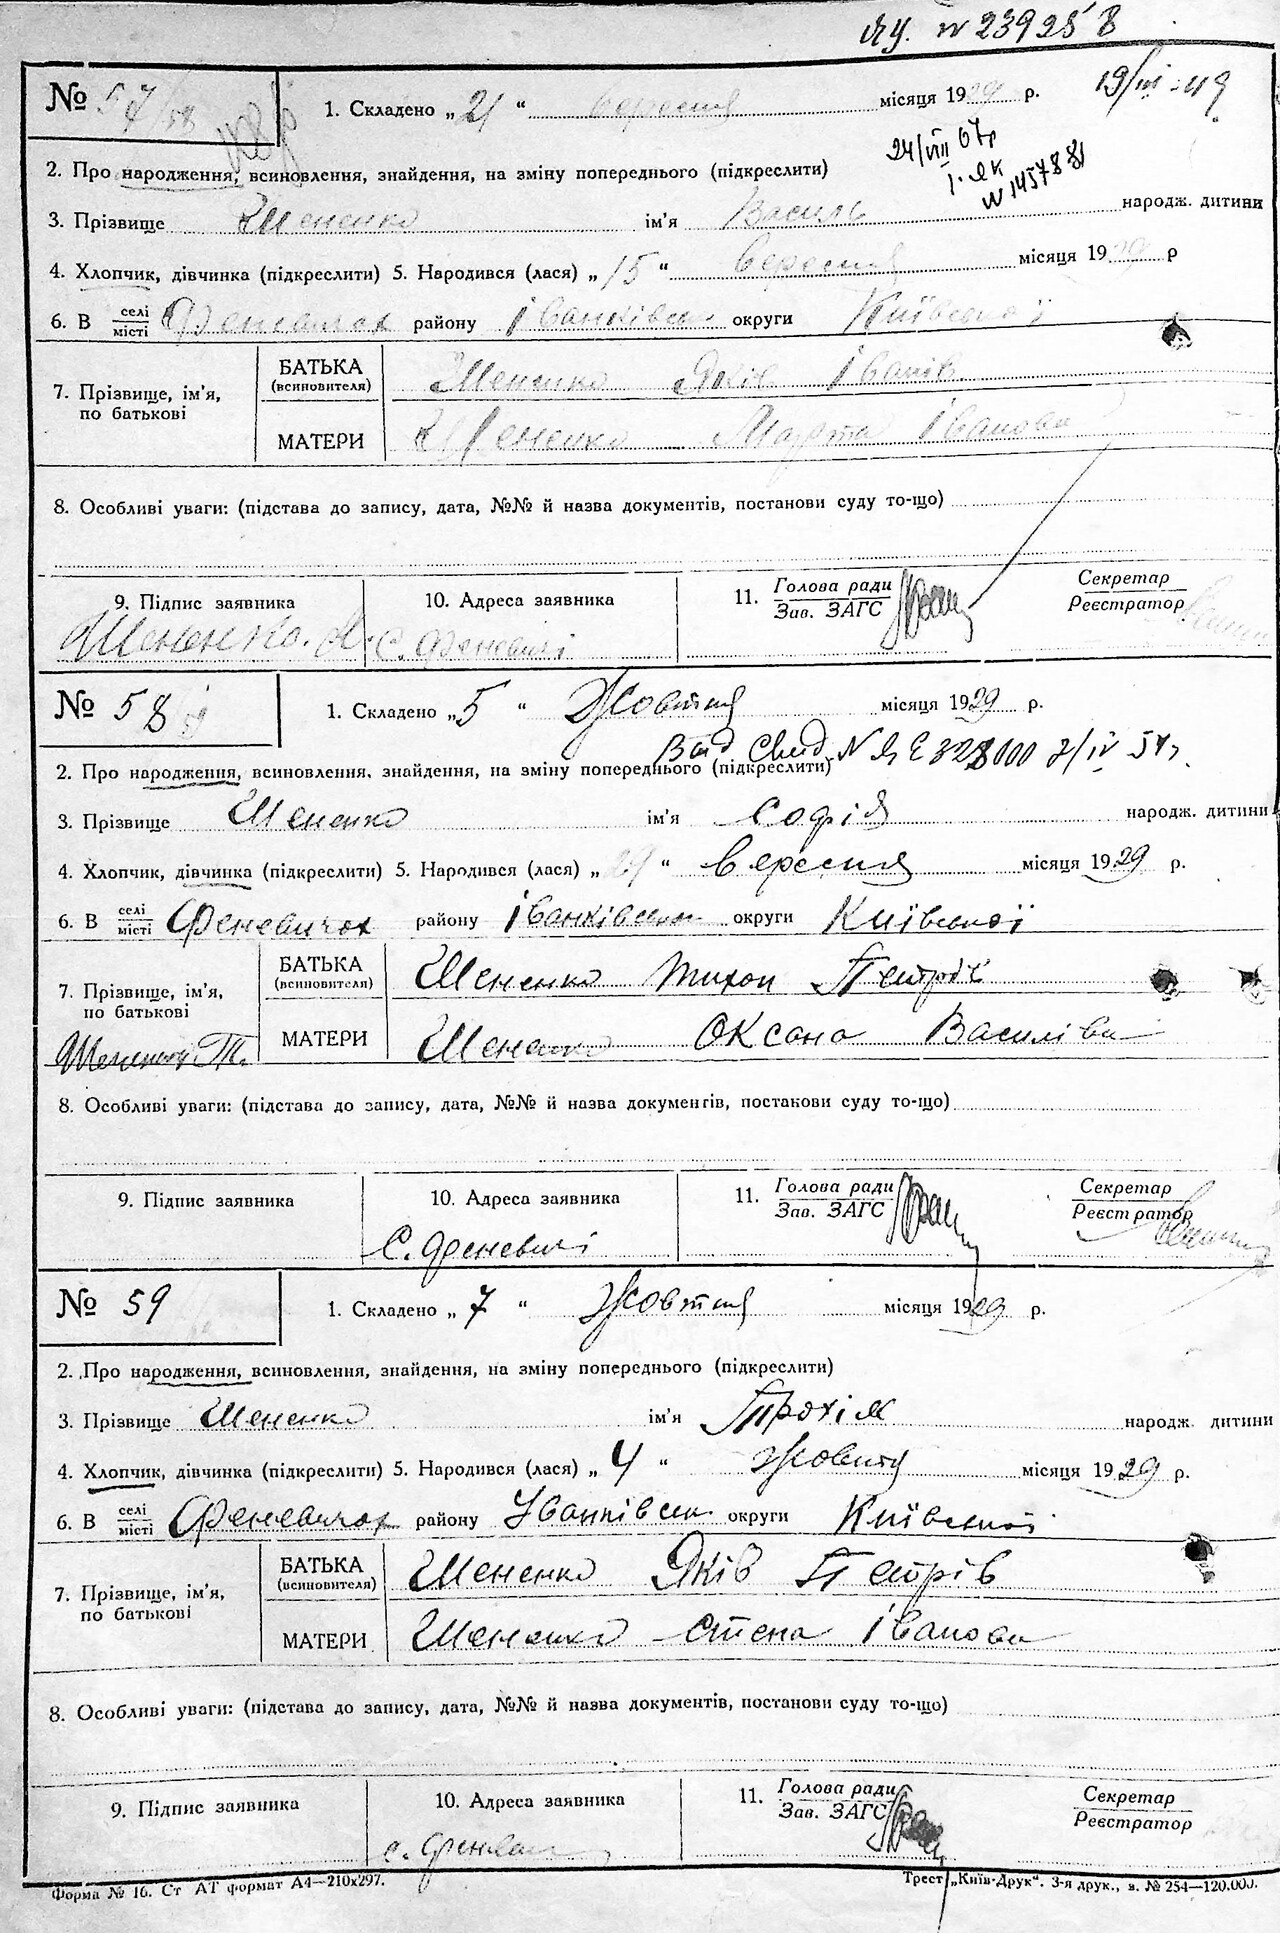 № 239258
№ 57/58
1. Складено „21“ вересня місяця 1929 р.
19/III-49
24/VIII 67р
I. ЯК
№ 1457881
2. Про народження, всиновлення, знайдення, на зміну попереднього (підкреслити)
3. Прізвище Шененко ім'я Василь народж. дитини
4. Хлопчик, дівчинка (підкреслити) 5. Народився (лася) „15“ вересня місяця 1929 р
6. В селі місті Феневичах району Іванківськ округи Київської
7. Прізвище, ім'я, по батькові
БАТЬКА (всиновителя) Шененко Яків Іванів
МАТЕРИ Шененко Марта Іванова
8. Особливі уваги: (підстава до запису, дата, №№ й назва документів, постанови суду то-що)
9. Підпис заявника 10. Адреса заявника 11. Голова ради Зав. ЗАГС Секретар Реєстратор
Шененко. Я. с. Феневичі
№ 58
1. Складено „5“ Жовтня місяця 1929 р.
Вид Свид № ЯЕ 328000 7/IV 54р.
2. Про народження, всиновлення, знайдення, на зміну попереднього (підкреслити)
3. Прізвище Шененко ім'я Софія народж. дитини
4. Хлопчик, дівчинка (підкреслити) 5. Народився (лася) „29“ вересня місяця 1929 р.
6. В селі місті Феневичах району Іванківськ округи Київської
7. Прізвище, ім'я, по батькові
БАТЬКА (всиновителя) Шененко Тихон Петрів
МАТЕРИ Шененко Оксана Василіва
Шененко Т.
8. Особливі уваги: (підстава до запису, дата, №№ й назва документів, постанови суду то-що)
9. Підпис заявника 10. Адреса заявника 11. Голова ради Зав. ЗАГС Секретар Реєстратор
С. Феневичі
№ 59
1. Складено „7“ Жовтня місяця 1929 р.
2. Про народження, всиновлення, знайдення, на зміну попереднього (підкреслити)
3. Прізвище Шененко ім'я Трохім народж. дитини
4. Хлопчик, дівчинка (підкреслити) 5. Народився (лася) „4“ Жовтня місяця 1929 р.
6. В селі місті Феневичах району Іванківськ округи Київської
7. Прізвище, ім'я, по батькові
БАТЬКА (всиновителя) Шененко Яків Петрів
МАТЕРИ Шененко Степа Іванова
8. Особливі уваги: (підстава до запису, дата, №№ й назва документів, постанови суду то-що)
9. Підпис заявника 10. Адреса заявника 11. Голова ради Зав. ЗАГС Секретар Реєстратор
с.
Форма № 16. Ст АТ формат А4—210х297. Трест „Київ-Друк“. 3-я друк., з. № 254—120.000.